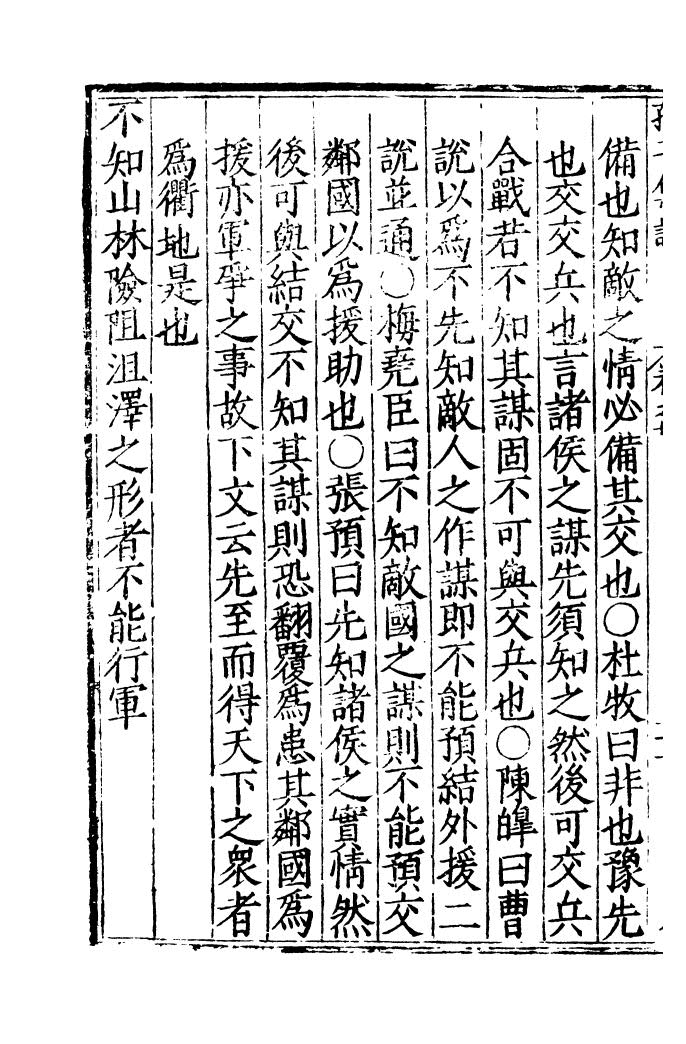 備也知敵之情必備其交也〇杜牧曰非也豫先
也交交兵也言諸侯之謀先須知之然後可交兵
合戰若不知其謀固不可與交兵也〇陳皥曰曹
說以爲不先知敵人之作謀即不能預結外援二
說並通〇梅堯臣曰不知敵國之謀則不能預交
鄰國以爲援助也〇張預曰先知諸侯之實情然
後可與結交不知其謀則恐翻覆爲患其鄰國爲
援亦軍爭之事故下文云先至而得天下之衆者
爲衢地是也
不知山林險阻沮澤之形者不能行軍